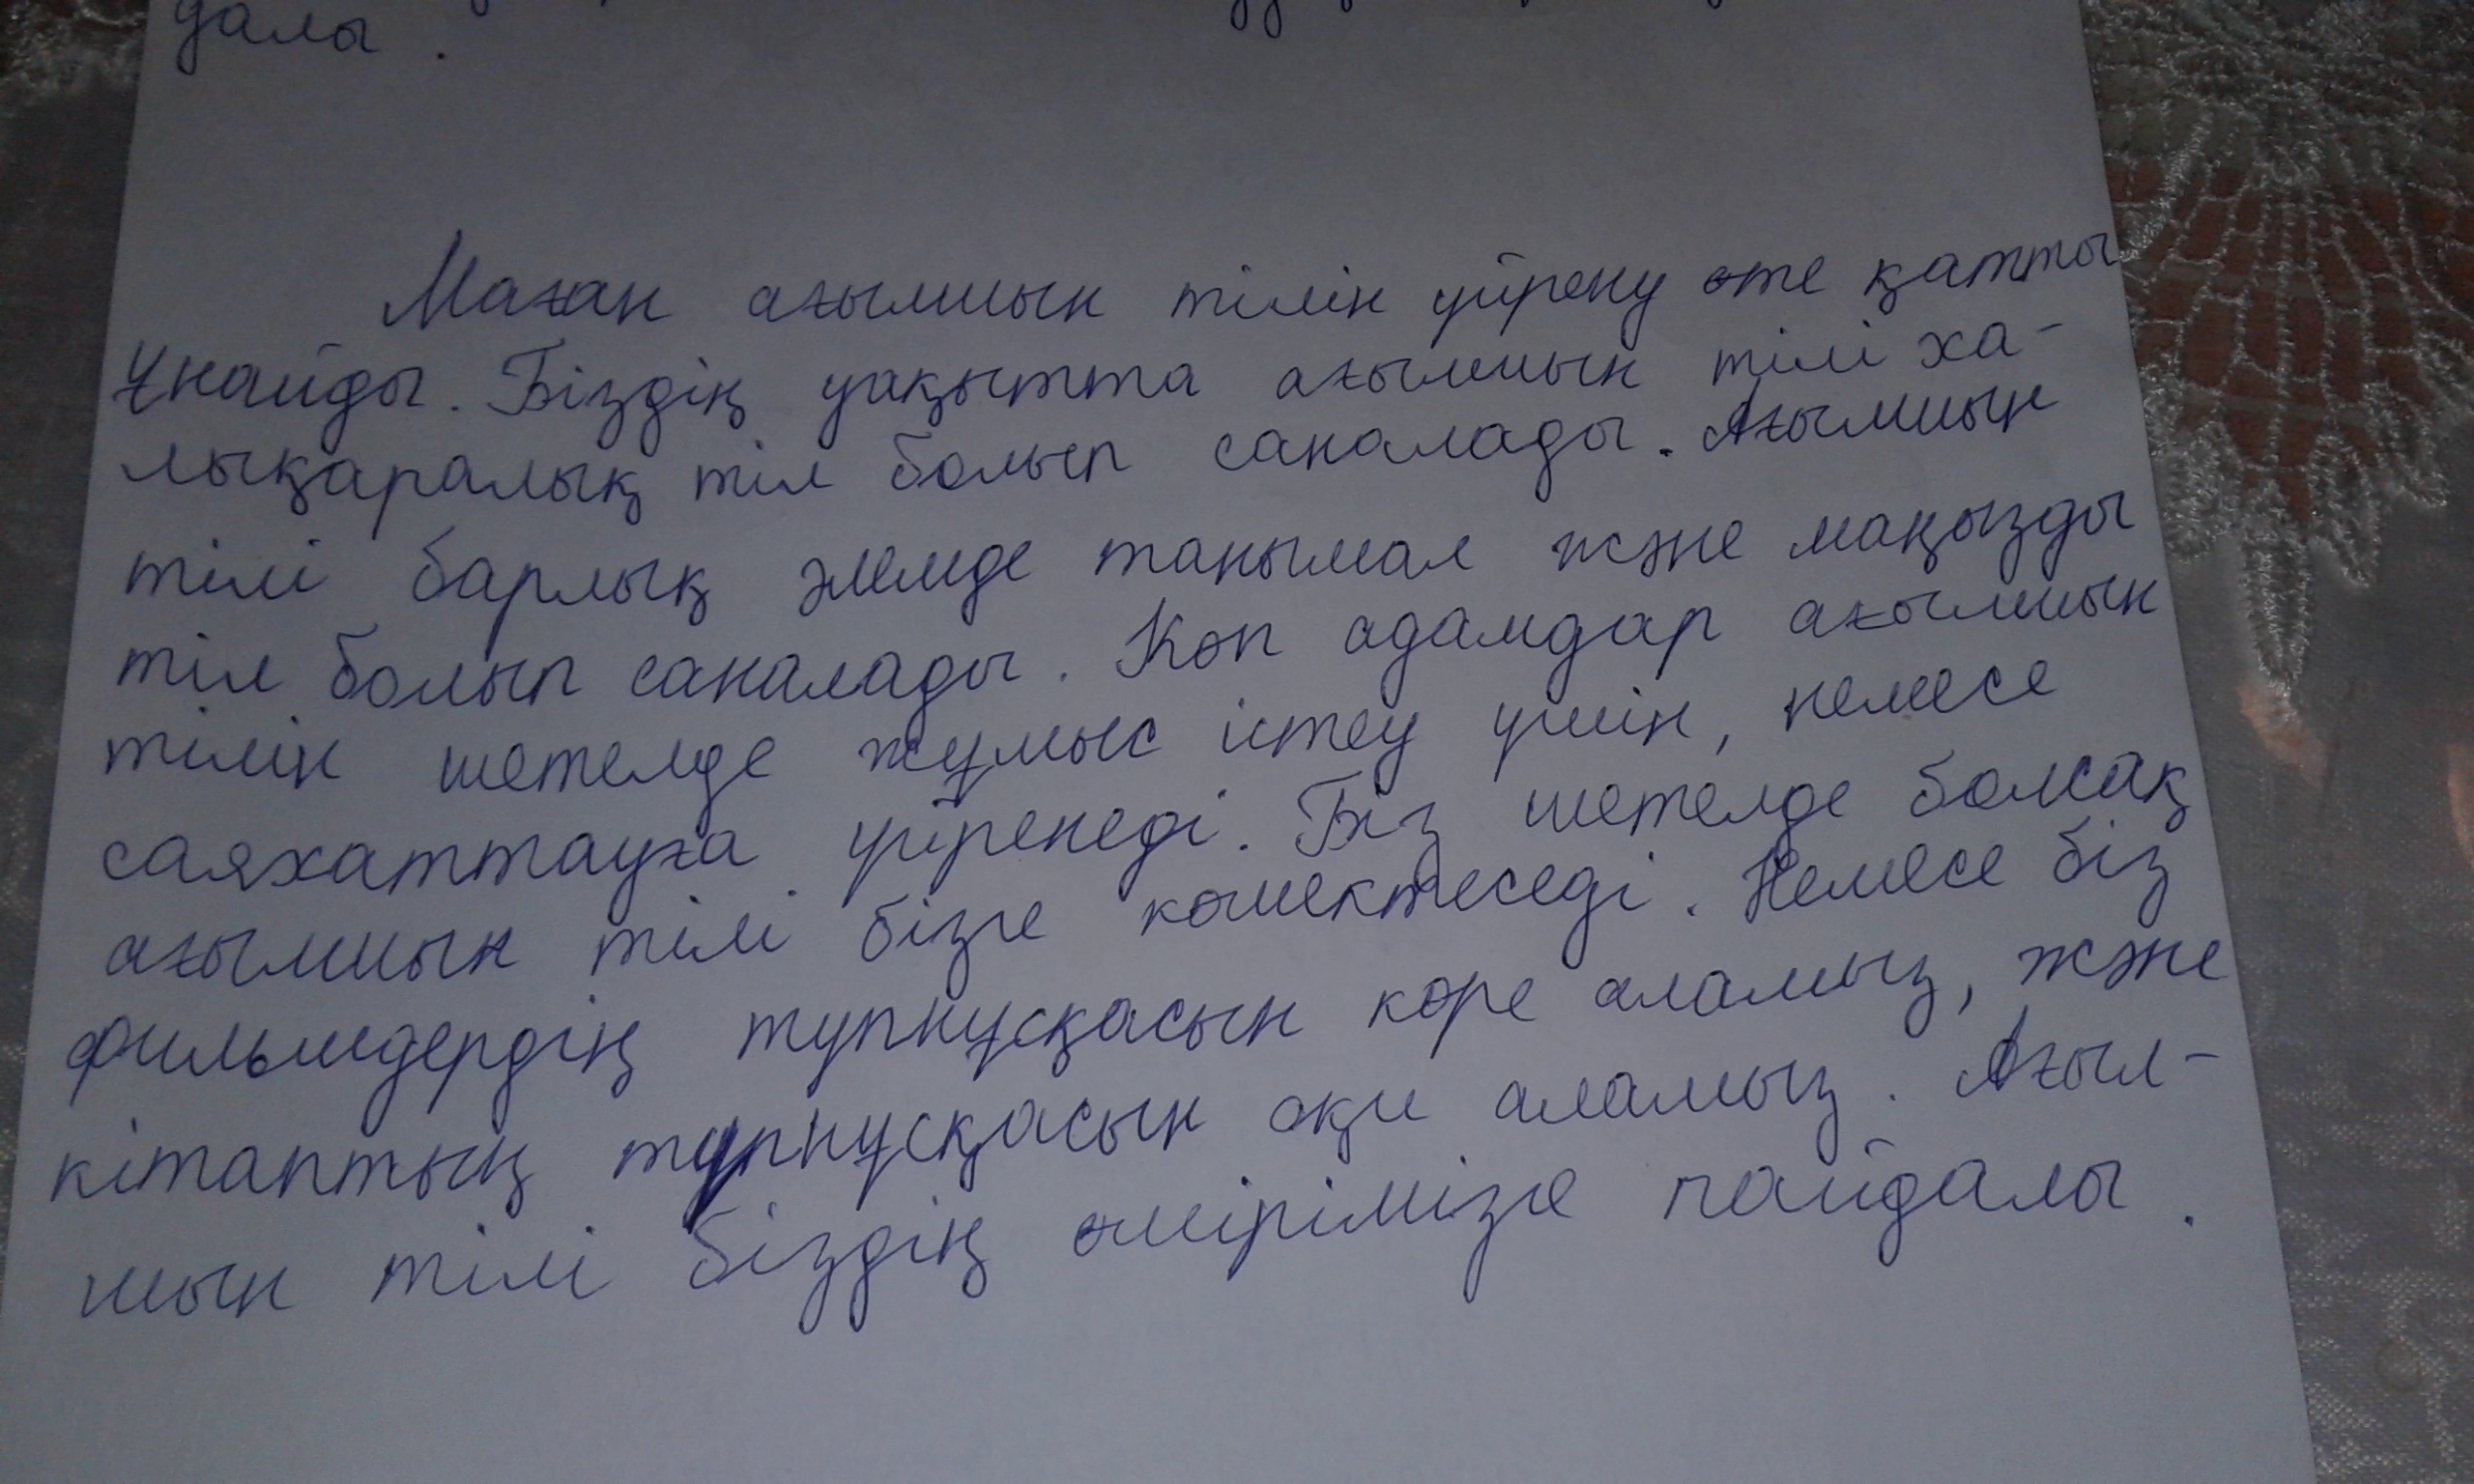 далы.
Маған ағылшын тілін үйрену өте қатты
ұнайды. Біздің уақытта ағылшын тілі ха-
лықаралық тіл болып саналады. Ағылшын
тілі барлық әлемде танымал және маңызды
тіл болып саналады. Көп адамдар ағылшын
тілін шетелде жұмыс істеу үшін, немесе
саяхаттауға үйренеді. Біз шетелде болсақ
ағылшын тілі бізге көмектеседі. Немесе біз
фильмдердің түпнұсқасын көре аламыз, және
кітаптың түпнұсқасын оқи аламыз. Ағыл-
шын тілі біздің өмірімізге пайдалы.